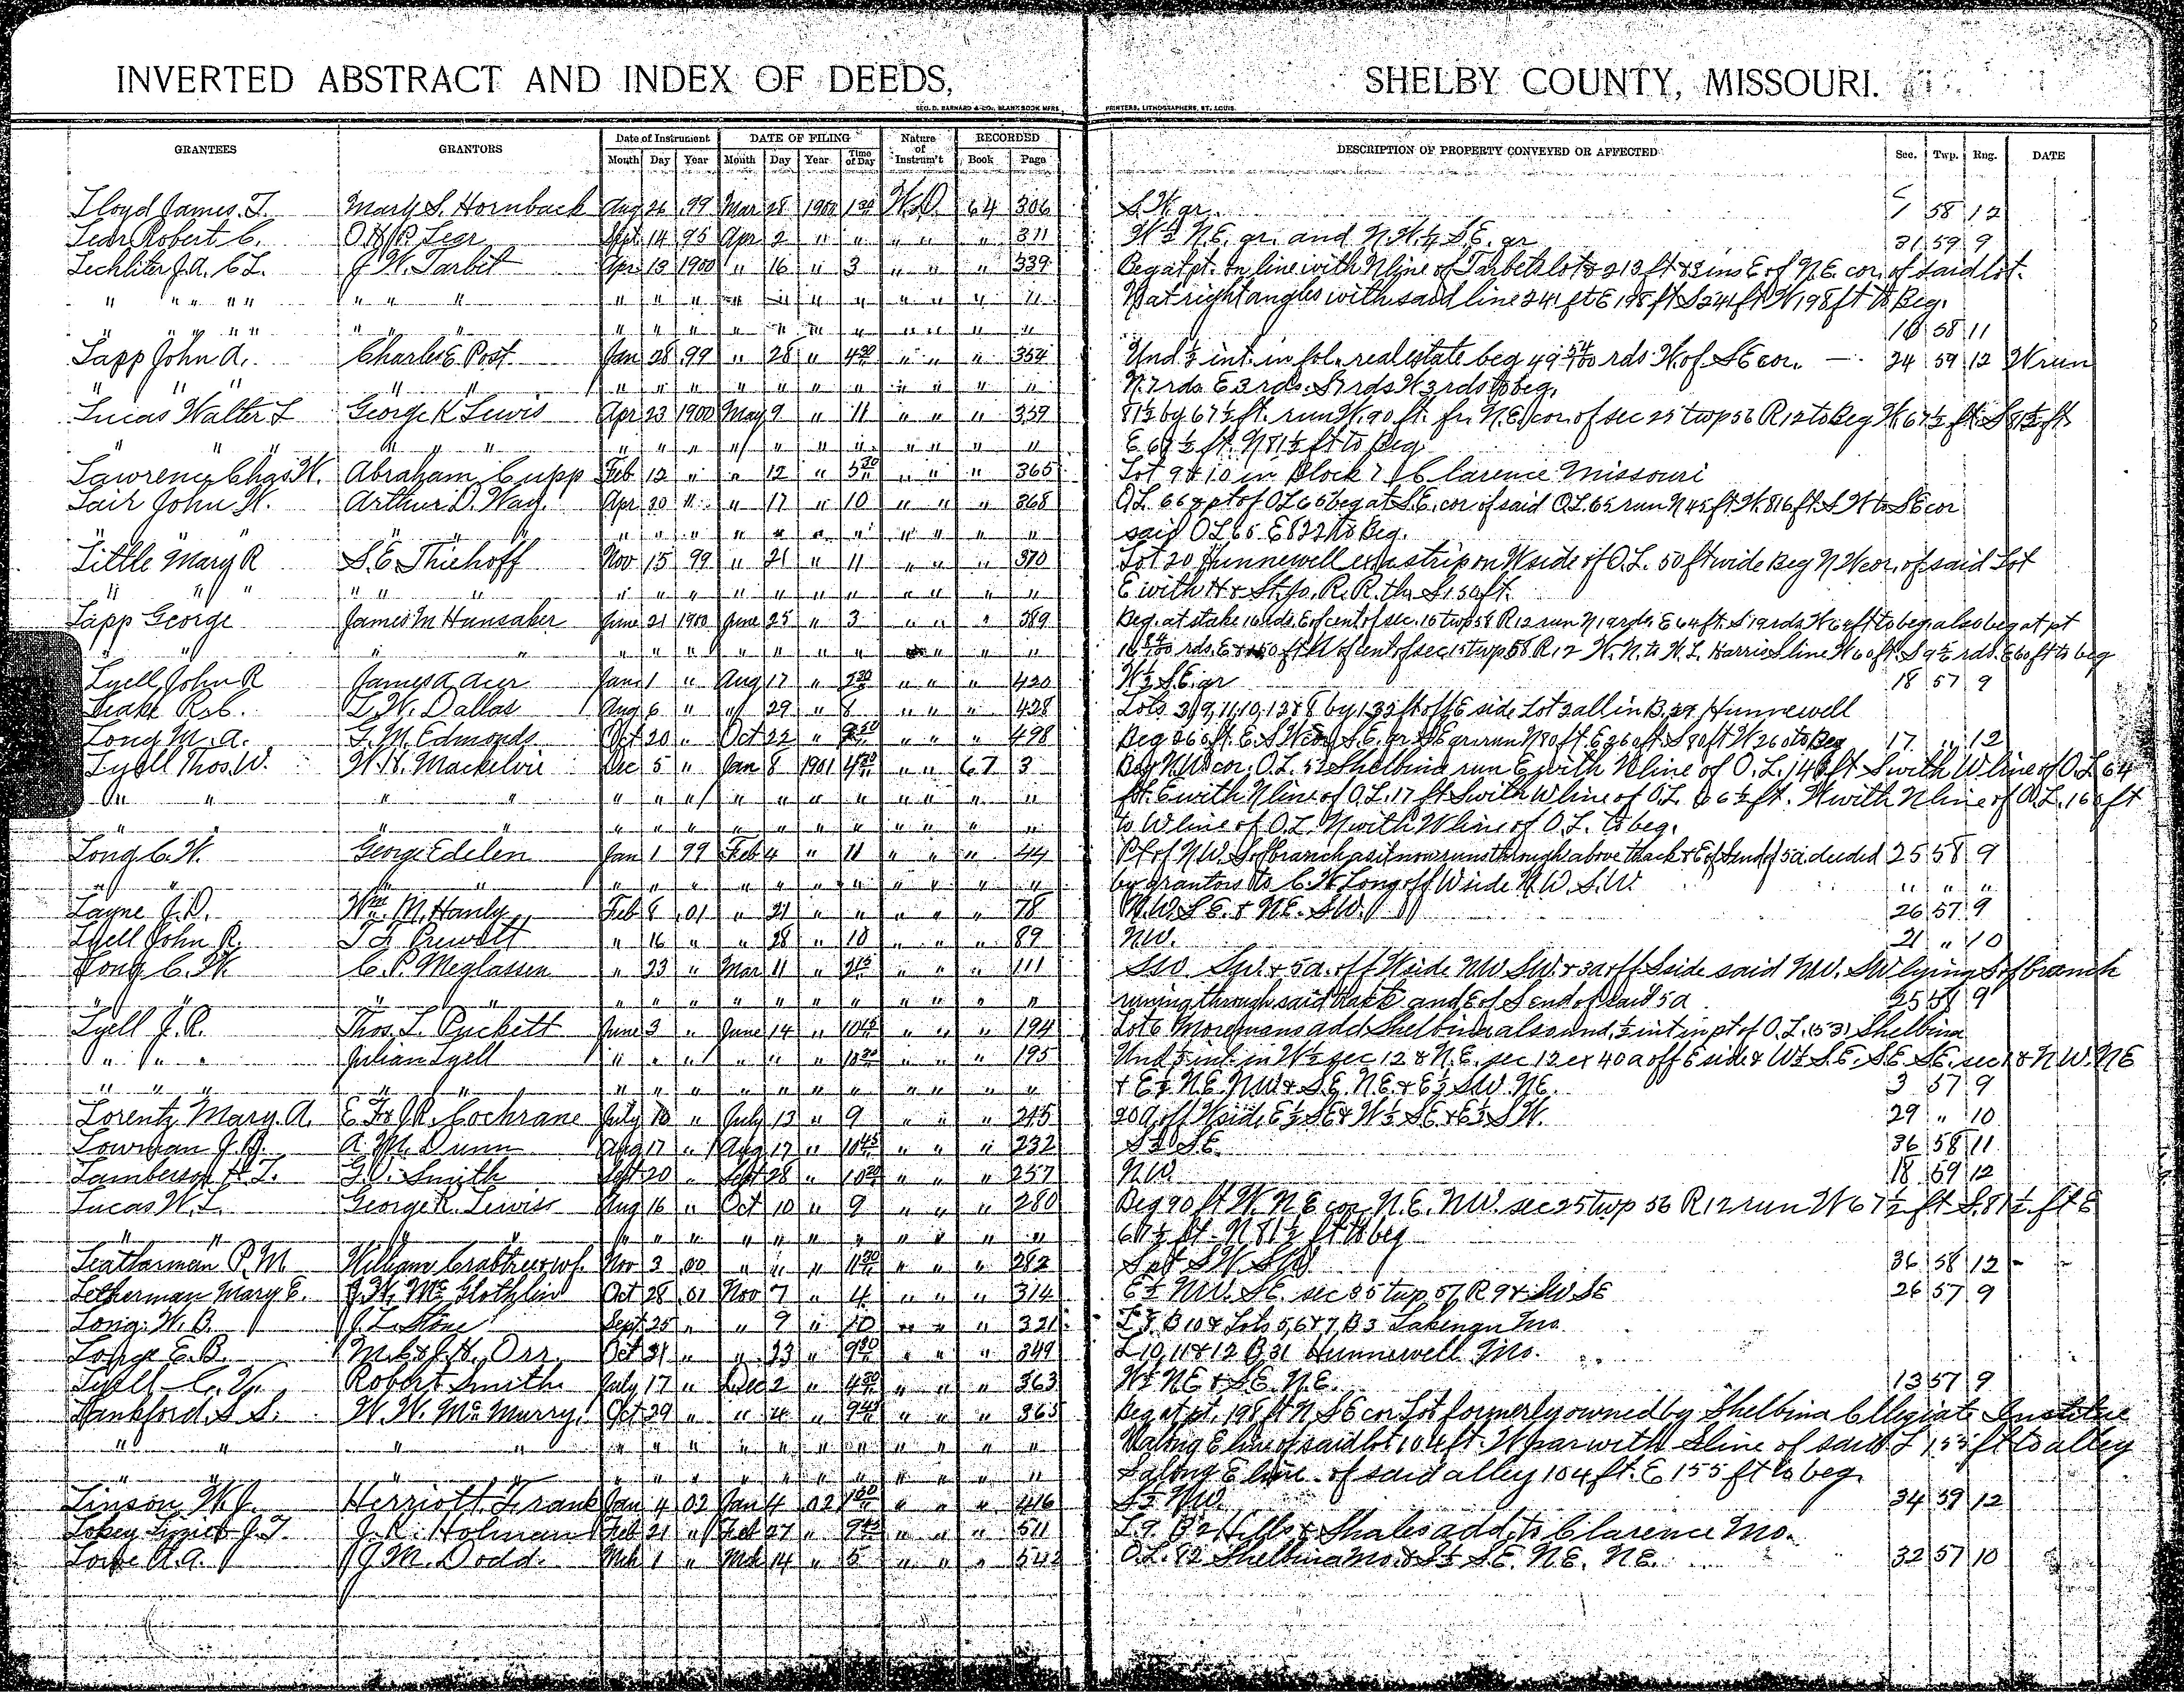 INVERTED ABSTRACT AND INDEX OF DEEDS, SHELBY COUNTY, MISSOURI.
GEO. D. BARNARD & CO., BLANK BOOK MFRS. PRINTERS, LITHOGRAPHERS, ST. LOUIS.
GRANTEES GRANTORS Date of Instrument DATE OF FILING Nature of Instrum't RECORDED DESCRIPTION OF PROPERTY CONVEYED OR AFFECTED Sec. Twp. Rng. DATE
Month Day Year Month Day Year Time of Day Book Page
Lloyd James T. Mary S. Hornback Aug 26 99 Mar 28 1900 1 30 W.D. 64 306 S.W. qr. 58 12
Lear Robert C. Lear Sept 14 95 Apr 2 " " " " " 311 W½ N.E. qr. and N.W.¼ S.E. qr 31 59 9
Lechliter J.A. C.L. J.W. Tarbet Apr 13 1900 " 16 " 3 " " " 339 Beg at pt. on line with N line of Tarbets lot & 213 ft & 3 ins E of N.E. cor. of said lot.
" " " " " " " " " " " " " " " " " " " " N at right angles with said line 241 ft E 198 ft S 241 ft W 198 ft to Beg.
" " " " " " " " " " " " " " " " " " " " 16 58 11
Lapp John A. Charles E. Post Jan 28 99 " 28 " 4 30 " " " 354 Und ½ int. in fol. real estate beg 49 54/100 rds. W. of S E cor. — 24 59 12 W run
" " " " " " " " " " " " " " " " " " N. 7 rds. E 3 rds. S 7 rds W 3 rds to beg.
Lucas Walter L George R Lewis Apr 23 1900 May 9 " 11 " " " 359 81½ by 67½ ft. run W. 90 ft. fr. N.E. cor. of sec 25 twp 56 R 12 to Beg W. 67½ ft. S 81½ ft.
" " " " " " " " " " " " " " " " " E 67½ ft. N 81½ ft to Beg
Lawrence Chas. W. Abraham Cupp Feb 12 " " 12 " 5 30 " " " 365 Lot 9 & 10 in Block 7 Clarence Missouri
Lair John W. Arthur D. Way Apr 30 " " 17 " 10 " " " 368 O.L. 66 & pt of OL 65 beg at S.E. cor of said O.L. 65 run N 45 ft W. 816 ft. S W to SE cor
" " " " " " " " " " " " " " said O L 65 E 822 to Beg.
Little Mary R S.E. Thiehoff Nov 15 99 " 21 " 11 " " " 370 Lot 20 Hunnewell ex a strip on W side of O.L. 50 ft wide Beg N W cor. of said Lot
" " " " " " " " " " " " " " " " E with H & St. Jo. R.R. th. S 150 ft.
Lapp George James M Hunsaker June 21 1900 June 25 " 3 " " " 389 Beg. at stake 16 rds. E of cent of sec. 15 twp 58 R 12 run N 19 rds E 64 ft. S 19 rds W 64 ft to beg also beg at pt
" " " " " " " " " " " " " " rds. E of cent of sec 15 twp 58 R 12 W. N. to W. L. Harris line W 60 ft. S 9½ rds. E 60 ft to beg
Lyell John R James A Acer Jan 1 " Aug 17 " 2 30 " " " 420 W½ S.E. qr 18 57 9
Leake L.W. Dallas Aug 6 " " 29 " 8 " " " 428 Lots all in B. 29 Hunnewell
Long M.A. T.M. Edmonds Oct 20 " Oct 22 " " " " 498 Beg 260 ft. E. run N 80 ft. E 260 ft. S 80 ft W 260 to Beg 17 " 12
Lyell Thos. W. W.H. Mackelvie Dec 5 " Jan 8 1901 4 30 " " 67 3 Beg N.W. cor. O.L. Shelbina run E with N line of O.L. ft S with W line of O.L. 64
" " " " " " " " " " " " " " " ft. E with N line of O.L. 17 ft S with W line of O.L. ft. W with N line of O.L. ft
" " " " " " " " " " " " " " " to W line of O.L. N with W line of O.L. to beg.
Long C.W. George Edelen Jan 1 99 Feb 4 " 11 " " " 44 Pt of N.W. S of branch as it now runs through above track & E of S end of 5 a. deeded 25 58 9
" " " " " " " " " " " " " " by grantors to C.W. Long off W side N.W. S.W. " " "
Layne J.D. Wm. M. Hanly Feb 8 01 " 21 " " " " " 78 N.W. S.E. & N.E. S.W. 26 57 9
Lyell John R. Prewett " 16 " 28 " 10 " " " 89 N.W. 21 " 10
Long C.W. C.P. Meglassen " 23 " Mar 11 " 2 15 " " " 111 & 5 a. off W side NW SW. & 3 a off S side said NW. SW lying S of branch
" " " " " " " " " " " " " " runing through said track and E of S end of said 5 a 25 58 9
Lyell J.R. Thos. L. Puckett June 3 " June 14 " 10 45 " " " 194 Lot 6 add Shelbina also und. ½ int in pt of O.L. (53) Shelbina
" " " Julian Lyell " " " " " " " " " 195 Und ½ int. in W½ sec 12 & N.E. sec 12 ex 40 a off E side & W½ S.E. S.E. S.E. sec 1 & N W. N E
" " " " " " " " " " " " " " " & E½ N.E. NW & S.E. N.E. & E½ S.W. N.E. 3 57 9
Lorentz Mary A. Cochrane July 10 " July 13 " 9 " " " 215 20 a off W side E½ SE & W½ SE & E½ S.W. 29 " 10
Lowman A.M. Dunn Aug 17 " Aug 17 " 10 45 " " " 232 S.E. 36 58 11
Lamberson H.T. Smith Sept 20 " Sept 28 " " " " 257 N.W. 18 59 12
Lucas W.L. George R. Lewis Aug 16 " Oct 10 " 9 " " " 280 Beg 90 ft W. N E cor. N.E. NW. sec 25 twp 56 R 12 run W 67½ ft S. 81½ ft E
" " " " " " " " " " " " " " 67½ ft. N 81½ ft to beg
Leatharman P.M. William Crabtree & wf. Nov 2 00 " " " 11 30 " " " 282 S pt S.W. SW 36 58 12
Letherman Mary E. J.W. McGlothlin Oct 28 01 Nov 7 " 4 " " " 314 E½ NW. SE. sec 35 twp 57 R 9 & SW SE 26 57 9
Long W.B. J.L. Stone Sept 25 " " 9 " 10 " " " 321 B 10 & Lots 5, 6 & 7, B 3 Lakenan Mo.
E.B. Orr Oct 31 " " 23 " 9 30 " " " 349 L 10, 11 & 12 B. 31 Hunnewell Mo.
Lyell Robert Smith July 17 " Dec 2 " 4 30 " " " 363 W½ NE & S.E. N.E. 13 57 9
Lankford S.S. W.W. McMurry Oct 29 " " 4 " 9 45 " " " 365 Beg at pt. 198 ft N S E cor Lot formerly owned by Shelbina Collegiate
" " " " " " " " " " " " " " N along E line of said lot 104 ft. W par with S line of said L 155 ft to alley
" " " " " " " " " " " " " " S along E line of said alley 104 ft. E 155 ft to beg.
Linson W.J. Herriott Frank Jan 4 02 Jan 4 02 " " " 416 S½ NW. 34 59 12
Lokey Lizzie & J.T. J.R. Holman Feb 21 " Feb 27 " " " " 511 L 9 B 2 Hills & Shales add. to Clarence Mo.
Lowe A.A. J.M. Dodd Mch 1 " Mch 14 " 5 " " " 542 O.L. 82 Shelbina Mo. & S½ S.E. N.E. N.E. 32 57 10